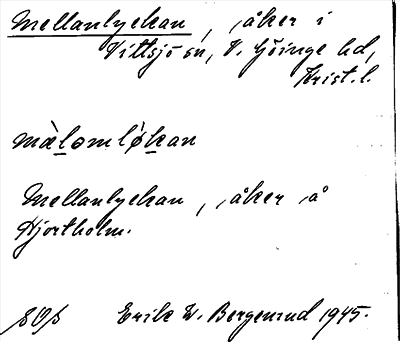 Mellanlyckan, åker i
Vittsjö sn, V. Göinge hd,
Krist. l.
mæ̀lomlø̀kan
Mellanlyckan, åker å
Hjortholm.
Erik W. Bergenrud 1945.